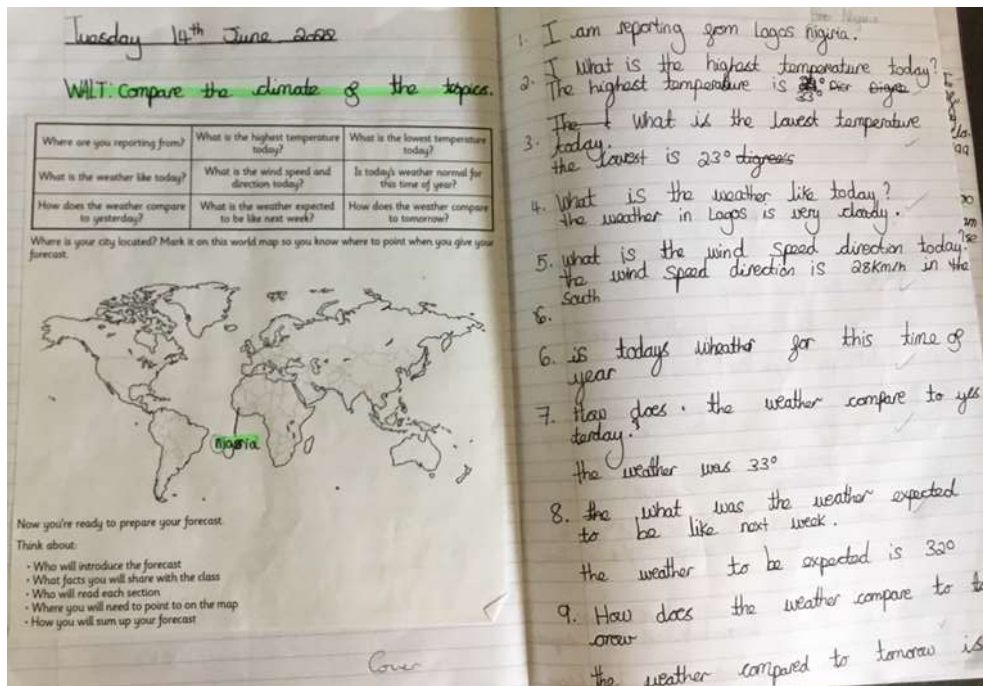 Tuesday 14th June 2022
WALT: Compare the climate of the topics.
Where are you reporting from?
What is the highest temperature today?
What is the lowest temperature today?
What is the weather like today?
What is the wind speed and direction today?
Is today's weather normal for this time of year?
How does the weather compare to yesterday?
What is the weather expected to be like next week?
How does the weather compare to tomorrow?
Where is your city located? Mark it on this world map so you know where to point when you give your
forecast.
Nigeria
Now you're ready to prepare your forecast.
Think about:
• Who will introduce the forecast
• What facts you will share with the class
• Who will read each section
• Where you will need to point to on the map
• How you will sum up your forecast
Cover
1. I am reporting from Lagos nigiria.
2. I What is the highest temperature today?
The highest temperature is 33°
3. The What is the lowest temperature
today.
the lowest is 23° digrees
4. What is the weather like today?
the weather in Lagos is very cloudy.
5. what is the wind speed direction today?
the wind speed direction is 28km/h in the
South
6.
6. is todays wheather for this time of
year
7. How does. the weather compare to yes
terday.
the weather was 33°
8. the what was the weather expected
to be like next week.
the weather to be expected is 32°
9. How does the weather compare to to
orow
the weather compared to tomorow is